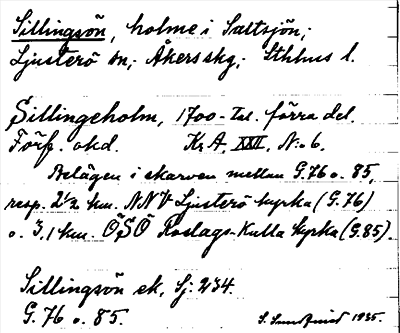 Sillingsön, holme i Saltsjön,
Ljusterö sn, Åkers skg, Sthlms l.
Sillingeholm, 1700-tal. förra del.
Förf. okd. Kr A, XXII, N:o 6.
Belägen i skarven mellan G.76 o. 85,
resp. 2 1/2 km. NNV Ljusterö kyrka (G.76)
o. 3,1 km. ÖSÖ Roslags-Kulla kyrka (G.85).
Sillingsön ek, Sj: 234.
G. 76 o. 85.
S. Sundquist 1935.